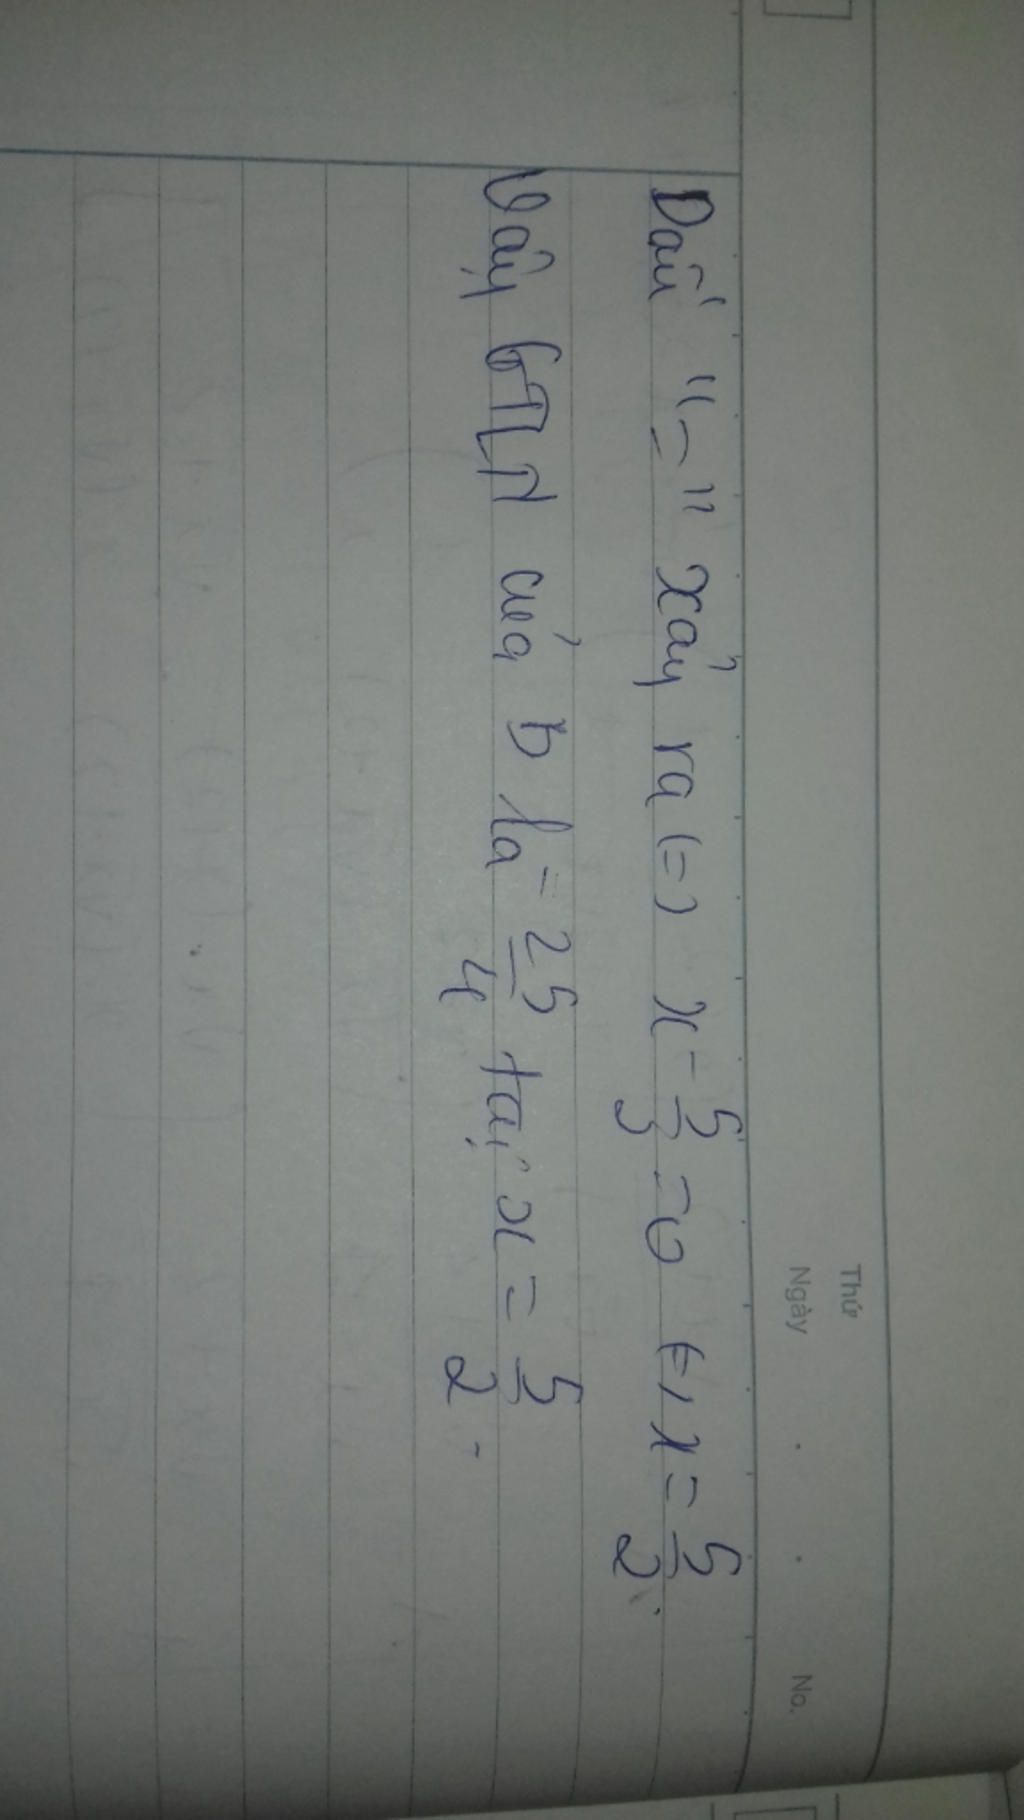 Thứ
Ngày . . No.
Dấu "=" xảy ra (=) x - 5/2 = 0 (=) x = 5/2.
Vậy GTLN của D là = 25/4 tại x = 5/2.